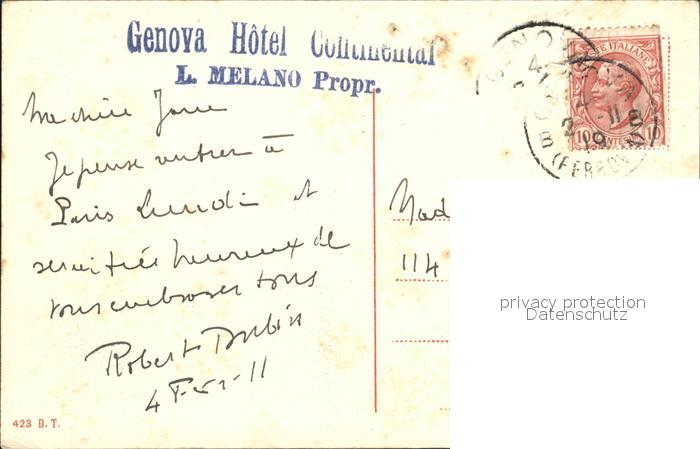 Genova Hôtel Continental
L. MELANO Propr.
Ma chère Jane
Je pense rentrer à
Paris Lundi et
serai très heureux de
vous embrasser tous
Robert
4 Fév-11
423 D. T.
POSTE ITALIANE
10 10
GENOVA
(FERROVIA)
Mad
114
privacy protection
Datenschutz